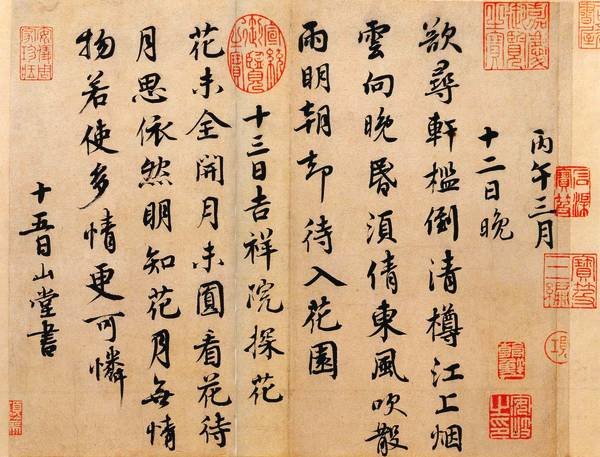 丙午三月
十二日晚
欲尋軒檻倒清樽江上烟
雲向晚昏須倩東風吹散
雨明朝却待入花園
十三日吉祥院探花
花未全開月未圓看花待
月思依然明知花月無情
物若使多情更可憐
十五日山堂書
嘉慶御覽之寶
宣統御覽之寶
安儀周家珍藏